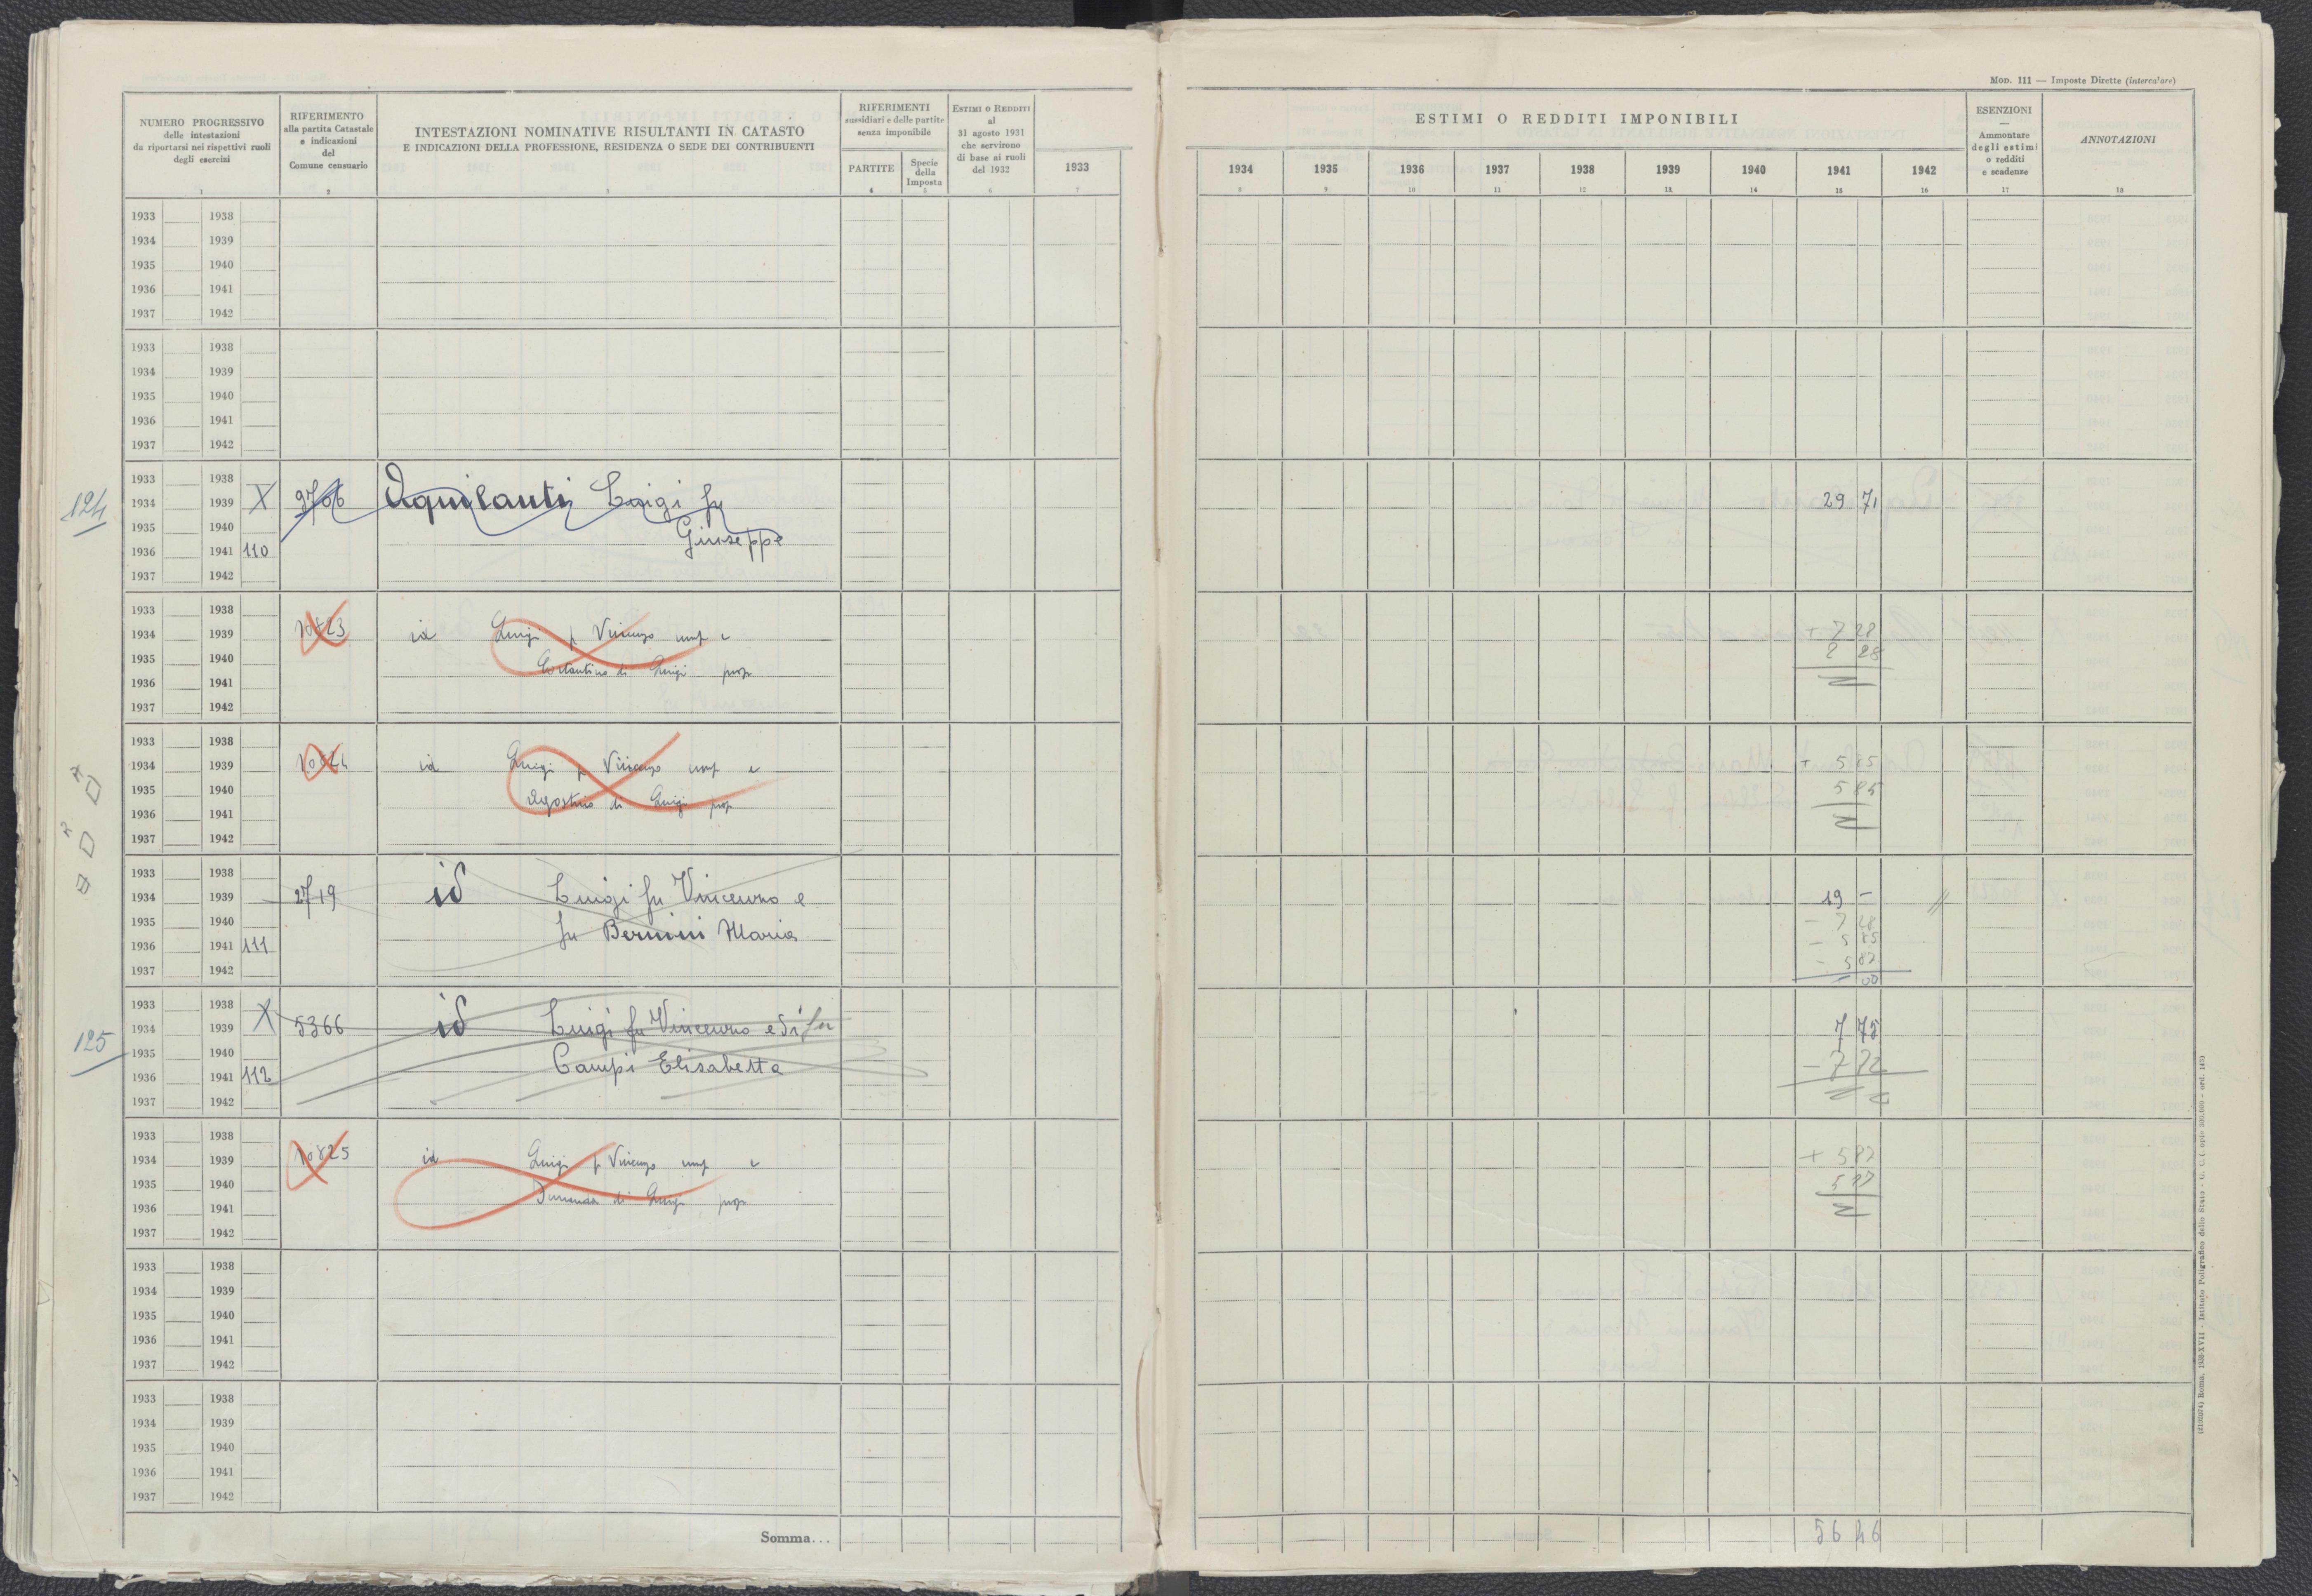 Mod. 111 — Imposte Dirette (intercalare)
NUMERO PROGRESSIVO
delle intestazioni
da riportarsi nei rispettivi ruoli
degli esercizi
1
RIFERIMENTO
alla partita Catastale
e indicazioni
del
Comune censuario
2
INTESTAZIONI NOMINATIVE RISULTANTI IN CATASTO
E INDICAZIONI DELLA PROFESSIONE, RESIDENZA O SEDE DEI CONTRIBUENTI
3
RIFERIMENTI
sussidiari e delle partite
senza imponibile
PARTITE
4
Specie
della
Imposta
5
ESTIMI O REDDITI
al
31 agosto 1931
che servirono
di base ai ruoli
del 1932
6
1933
7
ESTIMI O REDDITI IMPONIBILI
1934 1935 1936 1937 1938 1939 1940 1941 1942
8 9 10 11 12 13 14 15 16
ESENZIONI
—
Ammontare
degli estimi
o redditi
e scadenze
17
ANNOTAZIONI
18
1933 1938
1934 1939
1935 1940
1936 1941
1937 1942
1933 1938
1934 1939
1935 1940
1936 1941
1937 1942
1933 1938
124 1934 1939 X 9706 Aquilanti Luigi fu 29 71
1935 1940 Giuseppe
1936 1941 110
1937 1942
1933 1938
1934 1939 10823 id Luigi fu Vincenzo usuf e + 7 28
1935 1940 Costantino di Luigi prop 7 28
1936 1941
1937 1942
1933 1938
1934 1939 10824 id Luigi fu Vincenzo usuf e + 5 85
1935 1940 Agostino di Luigi prop 5 85
1936 1941
1937 1942
1933 1938
1934 1939 2719 id Luigi fu Vincenzo e 19 —
1935 1940 fu Bernini Maria — 7 28
1936 1941 111 — 5 85
1937 1942 — 5 87
00
1933 1938 X
1934 1939 5366 id Luigi fu Vincenzo e di fu 7 75
125 1935 1940 Campi Elisabetta — 7 72
1936 1941 112
1937 1942
1933 1938
1934 1939 10825 id Luigi fu Vincenzo usuf e + 5 87
1935 1940 di Luigi prop 5 87
1936 1941
1937 1942
1933 1938
1934 1939
1935 1940
1936 1941
1937 1942
1933 1938
1934 1939
1935 1940
1936 1941
1937 1942
Somma... 56 46
(2192074) Roma, 1938-XVII - Istituto Poligrafico dello Stato - G. C.